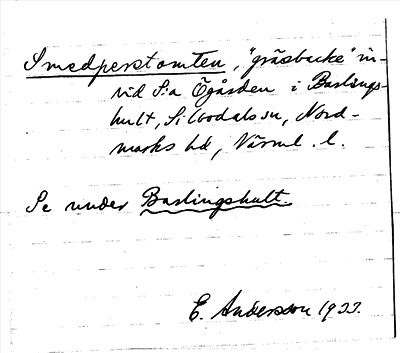 Smedperstomten, "gräsbacke" in-
vid S:a Ögården i Barlings-
hult, Silbodals sn, Nord-
marks hd, Värml. l.
Se under Barlingshult.
E. Andersson 1933.